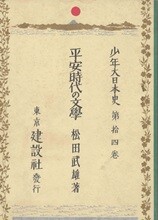 少年大日本史 第拾四卷
平安時代の文學
松田武雄著
東京 建設社 發行